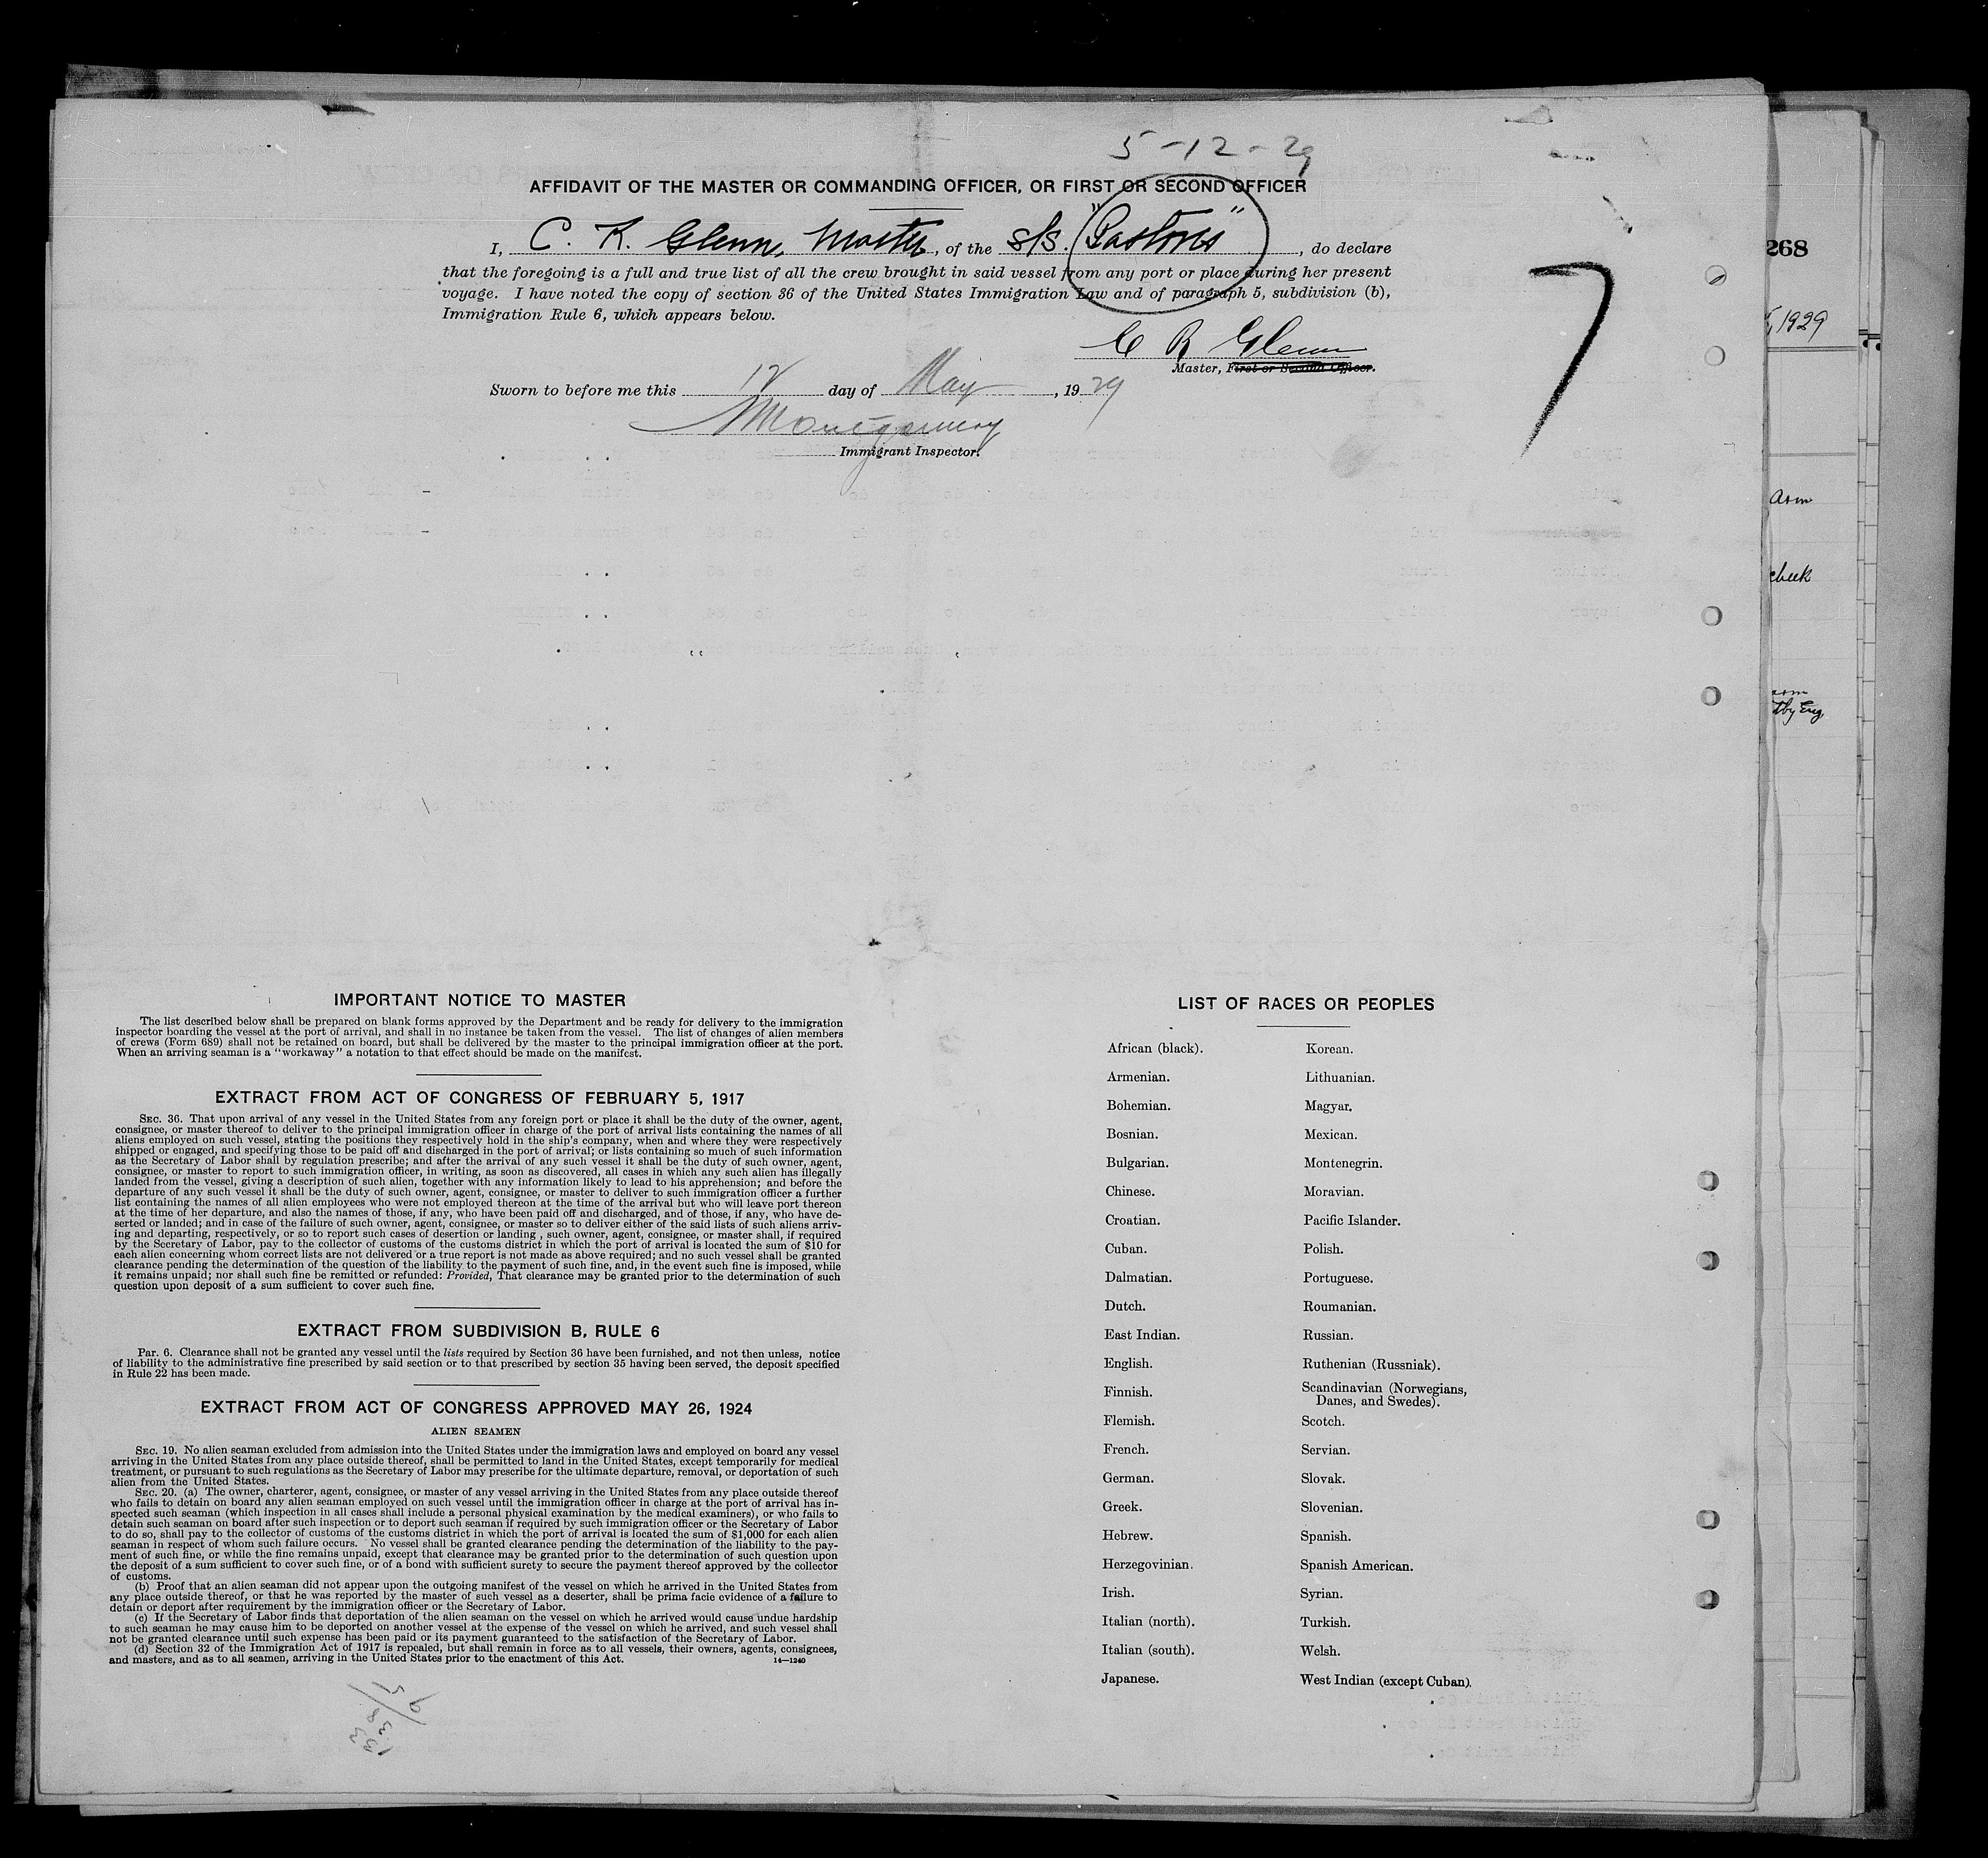 5-12-29
AFFIDAVIT OF THE MASTER OR COMMANDING OFFICER, OR FIRST OR SECOND OFFICER
I, C. R. Glenn, Master, of the s/s. "Pastores", do declare
that the foregoing is a full and true list of all the crew brought in said vessel from any port or place during her present
voyage. I have noted the copy of section 36 of the United States Immigration Law and of paragraph 5, subdivision (b),
Immigration Rule 6, which appears below.
C R Glenn
Master, First or Second Officer.
Sworn to before me this 12 day of May, 1929
Montgomery
Immigrant Inspector.
7
268
1929
asm
cheek
IMPORTANT NOTICE TO MASTER
The list described below shall be prepared on blank forms approved by the Department and be ready for delivery to the immigration
inspector boarding the vessel at the port of arrival, and shall in no instance be taken from the vessel. The list of changes of alien members
of crews (Form 689) shall not be retained on board, but shall be delivered by the master to the principal immigration officer at the port.
When an arriving seaman is a "workaway" a notation to that effect should be made on the manifest.
EXTRACT FROM ACT OF CONGRESS OF FEBRUARY 5, 1917
SEC. 36. That upon arrival of any vessel in the United States from any foreign port or place it shall be the duty of the owner, agent,
consignee, or master thereof to deliver to the principal immigration officer in charge of the port of arrival lists containing the names of all
aliens employed on such vessel, stating the positions they respectively hold in the ship's company, when and where they were respectively
shipped or engaged, and specifying those to be paid off and discharged in the port of arrival; or lists containing so much of such information
as the Secretary of Labor shall by regulation prescribe; and after the arrival of any such vessel it shall be the duty of such owner, agent,
consignee, or master to report to such immigration officer, in writing, as soon as discovered, all cases in which any such alien has illegally
landed from the vessel, giving a description of such alien, together with any information likely to lead to his apprehension; and before the
departure of any such vessel it shall be the duty of such owner, agent, consignee, or master to deliver to such immigration officer a further
list containing the names of all alien employees who were not employed thereon at the time of the arrival but who will leave port thereon
at the time of her departure, and also the names of those, if any, who have been paid off and discharged, and of those, if any, who have de-
serted or landed; and in case of the failure of such owner, agent, consignee, or master so to deliver either of the said lists of such aliens arriv-
ing and departing, respectively, or so to report such cases of desertion or landing , such owner, agent, consignee, or master shall, if required
by the Secretary of Labor, pay to the collector of customs of the customs district in which the port of arrival is located the sum of $10 for
each alien concerning whom correct lists are not delivered or a true report is not made as above required; and no such vessel shall be granted
clearance pending the determination of the question of the liability to the payment of such fine, and, in the event such fine is imposed, while
it remains unpaid; nor shall such fine be remitted or refunded: Provided, That clearance may be granted prior to the determination of such
question upon deposit of a sum sufficient to cover such fine.
EXTRACT FROM SUBDIVISION B, RULE 6
Par. 6. Clearance shall not be granted any vessel until the lists required by Section 36 have been furnished, and not then unless, notice
of liability to the administrative fine prescribed by said section or to that prescribed by section 35 having been served, the deposit specified
in Rule 22 has been made.
EXTRACT FROM ACT OF CONGRESS APPROVED MAY 26, 1924
ALIEN SEAMEN
SEC. 19. No alien seaman excluded from admission into the United States under the immigration laws and employed on board any vessel
arriving in the United States from any place outside thereof, shall be permitted to land in the United States, except temporarily for medical
treatment, or pursuant to such regulations as the Secretary of Labor may prescribe for the ultimate departure, removal, or deportation of such
alien from the United States.
SEC. 20. (a) The owner, charterer, agent, consignee, or master of any vessel arriving in the United States from any place outside thereof
who fails to detain on board any alien seaman employed on such vessel until the immigration officer in charge at the port of arrival has in-
spected such seaman (which inspection in all cases shall include a personal physical examination by the medical examiners), or who fails to
detain such seaman on board after such inspection or to deport such seaman if required by such immigration officer or the Secretary of Labor
to do so, shall pay to the collector of customs of the customs district in which the port of arrival is located the sum of $1,000 for each alien
seaman in respect of whom such failure occurs. No vessel shall be granted clearance pending the determination of the liability to the pay-
ment of such fine, or while the fine remains unpaid, except that clearance may be granted prior to the determination of such question upon
the deposit of a sum sufficient to cover such fine, or of a bond with sufficient surety to secure the payment thereof approved by the collector
of customs.
(b) Proof that an alien seaman did not appear upon the outgoing manifest of the vessel on which he arrived in the United States from
any place outside thereof, or that he was reported by the master of such vessel as a deserter, shall be prima facie evidence of a failure to
detain or deport after requirement by the immigration officer or the Secretary of Labor.
(c) If the Secretary of Labor finds that deportation of the alien seaman on the vessel on which he arrived would cause undue hardship
to such seaman he may cause him to be deported on another vessel at the expense of the vessel on which he arrived, and such vessel shall
not be granted clearance until such expense has been paid or its payment guaranteed to the satisfaction of the Secretary of Labor.
(d) Section 32 of the Immigration Act of 1917 is repealed, but shall remain in force as to all vessels, their owners, agents, consignees,
and masters, and as to all seamen, arriving in the United States prior to the enactment of this Act.
14—1240
LIST OF RACES OR PEOPLES
African (black). Korean.
Armenian. Lithuanian.
Bohemian. Magyar.
Bosnian. Mexican.
Bulgarian. Montenegrin.
Chinese. Moravian.
Croatian. Pacific Islander.
Cuban. Polish.
Dalmatian. Portuguese.
Dutch. Roumanian.
East Indian. Russian.
English. Ruthenian (Russniak).
Finnish. Scandinavian (Norwegians,
Danes, and Swedes).
Flemish. Scotch.
French. Servian.
German. Slovak.
Greek. Slovenian.
Hebrew. Spanish.
Herzegovinian. Spanish American.
Irish. Syrian.
Italian (north). Turkish.
Italian (south). Welsh.
Japanese. West Indian (except Cuban).